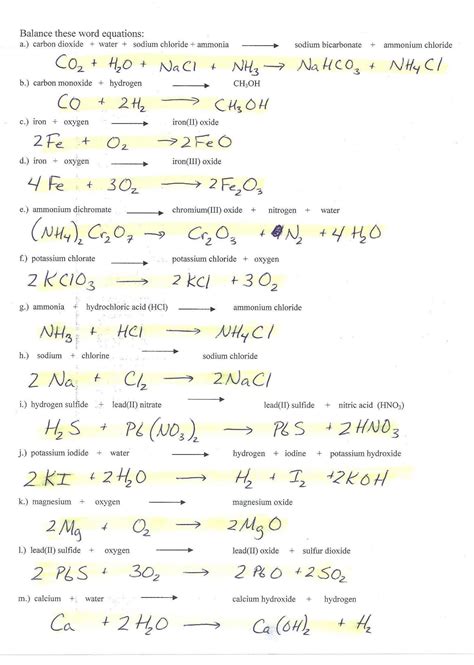 Balance these word equations:
a.) carbon dioxide + water + sodium chloride + ammonia → sodium bicarbonate + ammonium chloride
CO₂ + H₂O + NaCl + NH₃ → NaHCO₃ + NH₄Cl
b.) carbon monoxide + hydrogen → CH₃OH
CO + 2H₂ → CH₃OH
c.) iron + oxygen → iron(II) oxide
2Fe + O₂ → 2FeO
d.) iron + oxygen → iron(III) oxide
4Fe + 3O₂ → 2Fe₂O₃
e.) ammonium dichromate → chromium(III) oxide + nitrogen + water
(NH₄)₂Cr₂O₇ → Cr₂O₃ + N₂ + 4H₂O
f.) potassium chlorate → potassium chloride + oxygen
2KClO₃ → 2KCl + 3O₂
g.) ammonia + hydrochloric acid (HCl) → ammonium chloride
NH₃ + HCl → NH₄Cl
h.) sodium + chlorine → sodium chloride
2Na + Cl₂ → 2NaCl
i.) hydrogen sulfide + lead(II) nitrate → lead(II) sulfide + nitric acid (HNO₃)
H₂S + Pb(NO₃)₂ → PbS + 2HNO₃
j.) potassium iodide + water → hydrogen + iodine + potassium hydroxide
2KI + 2H₂O → H₂ + I₂ + 2KOH
k.) magnesium + oxygen → magnesium oxide
2Mg + O₂ → 2MgO
l.) lead(II) sulfide + oxygen → lead(II) oxide + sulfur dioxide
2PbS + 3O₂ → 2PbO + 2SO₂
m.) calcium + water → calcium hydroxide + hydrogen
Ca + 2H₂O → Ca(OH)₂ + H₂